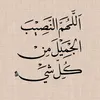 اللَّهُمَّ النَّصِيبَ
الجَمِيلَ مِن
كُلِّ شَيْءٍ